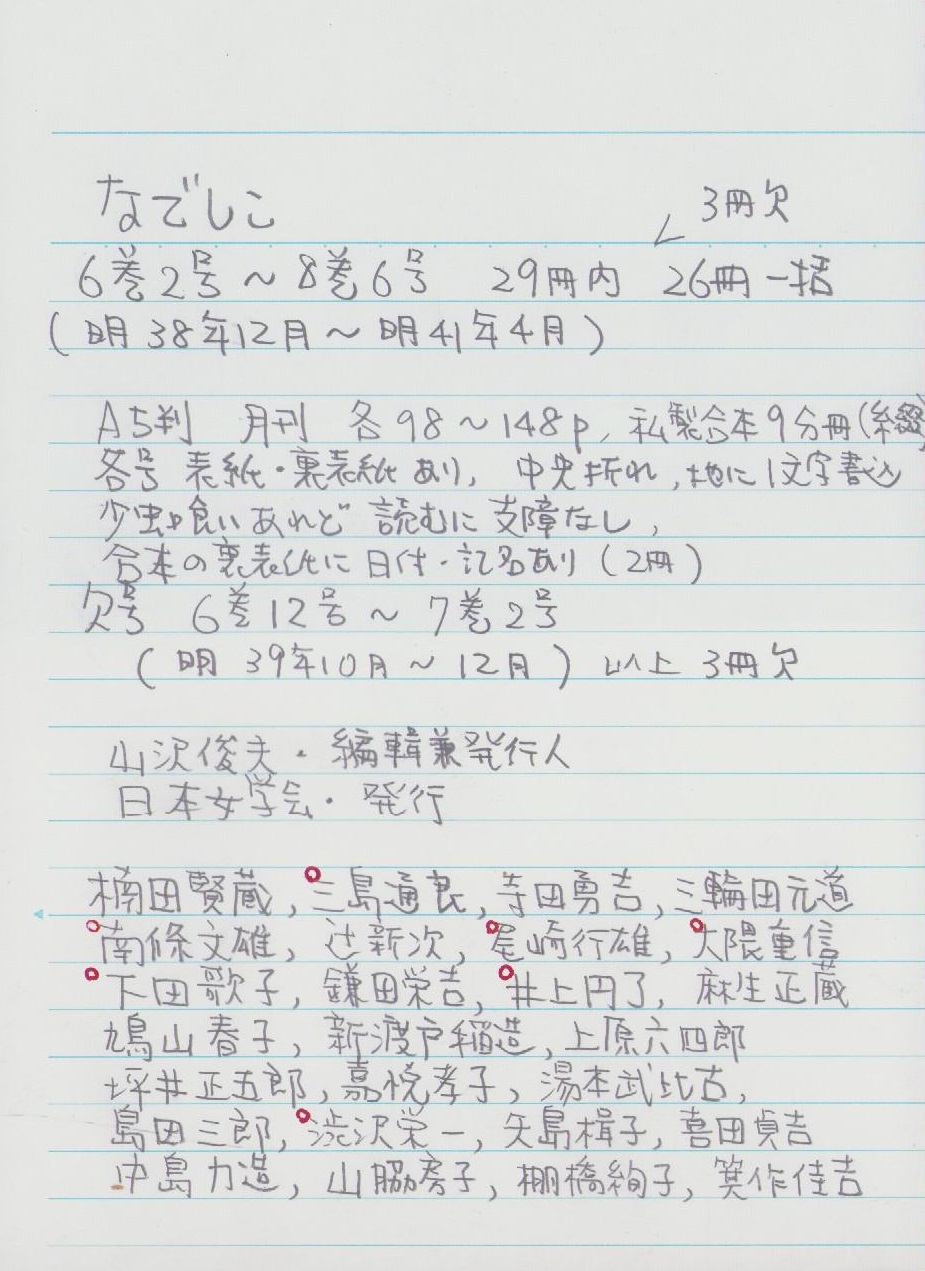 なでしこ
3冊欠
6巻2号～8巻6号 29冊内 26冊一括
(明38年12月～明41年4月)
A5判 月刊 各98～148p, 私製合本9分冊(糸綴)
各号 表紙・裏表紙あり, 中央折れ, 地に1文字書込
少虫喰いあれど 読むに支障なし,
合本の裏表紙に日付・記名あり(2冊)
欠号 6巻12号～7巻2号
(明39年10月～12月) 以上 3冊欠
山沢俊夫・編輯兼発行人
日本女学会・発行
楠田賢蔵, 三島通良, 寺田勇吉, 三輪田元道
南條文雄, 辻新次, 尾崎行雄, 大隈重信
下田歌子, 鎌田栄吉, 井上円了, 麻生正蔵
鳩山春子, 新渡戸稲造, 上原六四郎
坪井正五郎, 嘉悦孝子, 湯本武比古,
島田三郎, 渋沢栄一, 矢島楫子, 喜田貞吉
中島力造, 山脇房子, 棚橋絢子, 箕作佳吉